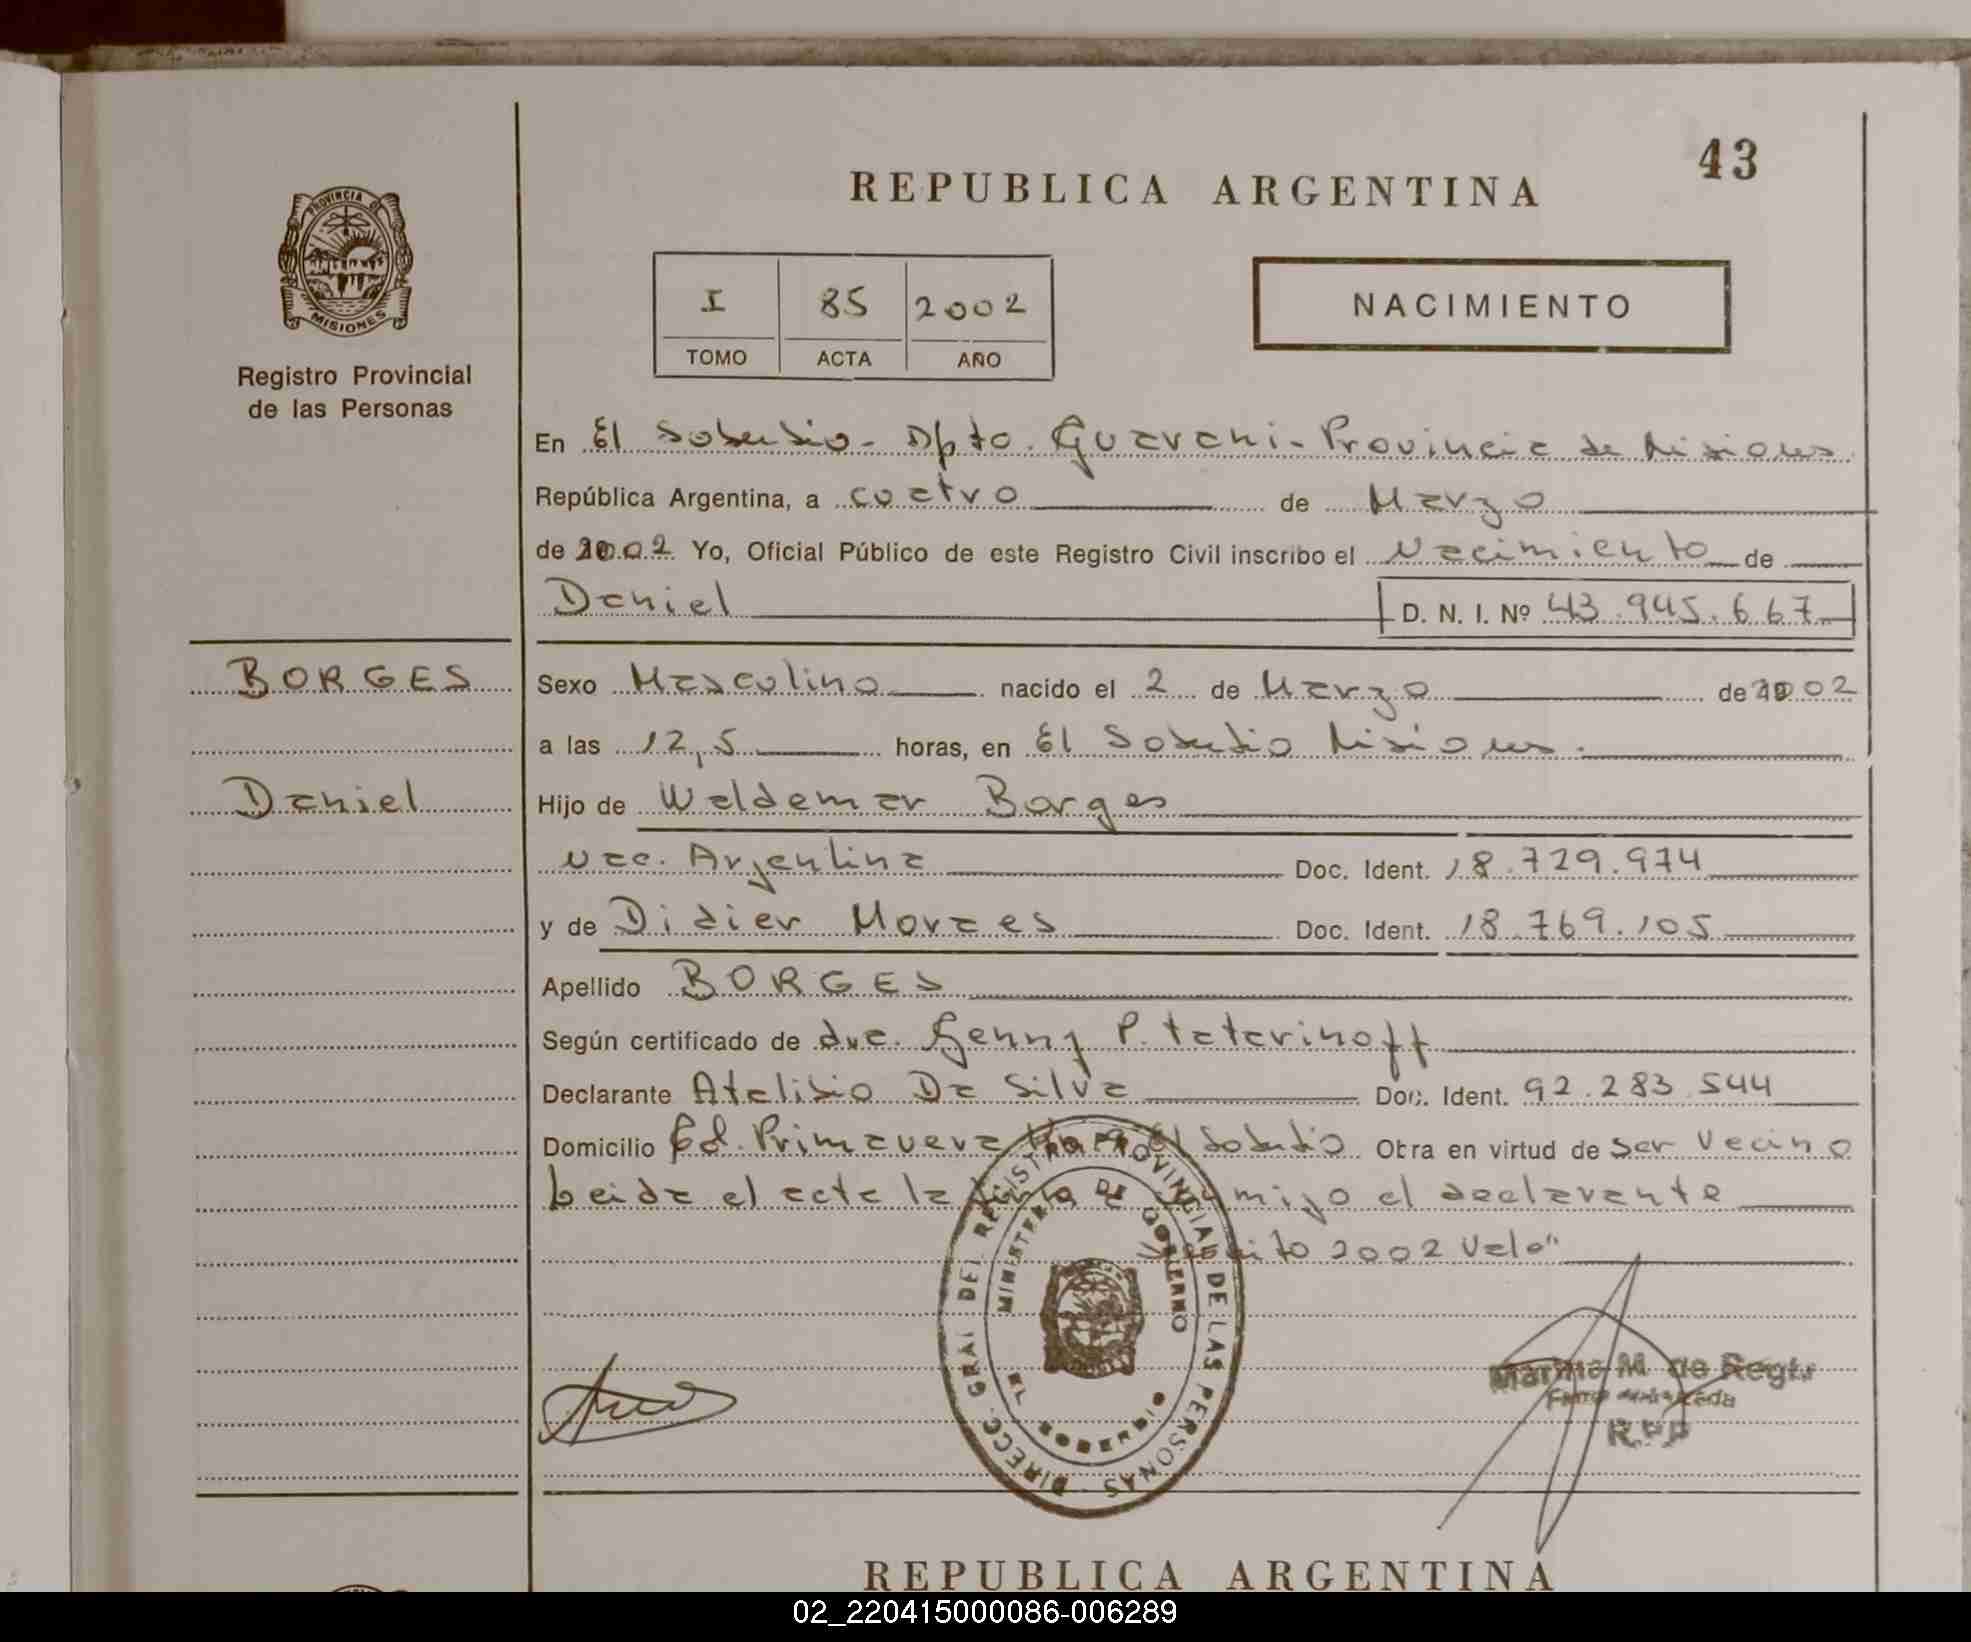 43
REPUBLICA ARGENTINA
PROVINCIA DE
MISIONES
Registro Provincial
de las Personas
I 85 2002
TOMO ACTA AÑO
NACIMIENTO
En El Soberbio - Dpto. Guarani - Provincia de Misiones
República Argentina, a cuatro de Marzo
de 2002 Yo, Oficial Público de este Registro Civil inscribo el Nacimiento de
Daniel D. N. I. Nº 43.945.667
BORGES
Sexo Masculino nacido el 2 de Marzo de 2002
a las 12,5 horas, en El Soberbio Misiones.
Daniel
Hijo de Waldemar Borges
Nac. Argentina Doc. Ident. 18.729.974
y de Didier Moraes Doc. Ident. 18.769.105
Apellido BORGES
Según certificado de dra. Genny P. Tatarinoff
Declarante Atalibio Da Silva Doc. Ident. 92.283.544
Domicilio Bd. Primavera El Soberbio Obra en virtud de ser Vecino
Leida el acta la conmigo el declarante
2002 Vale"
DIRECC. GRAL DEL REGISTRO PROVINCIAL DE LAS PERSONAS
MINISTERIO DE GOBIERNO
EL SOBERBIO
Marina M. de
R.P.P
REPUBLICA ARGENTINA
02_220415000086-006289